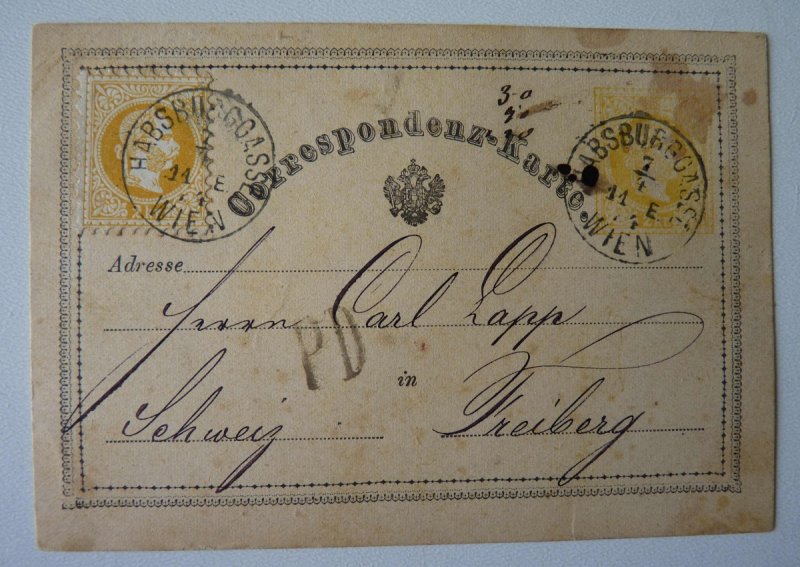 HABSBURGGASSE
11 E
WIEN
Correspondenz-Karte.
HABSBURGGASSE
7
4
11 E
74
WIEN
Adresse
Herrn Carl Lapp
PD
in
Schweiz Freiberg